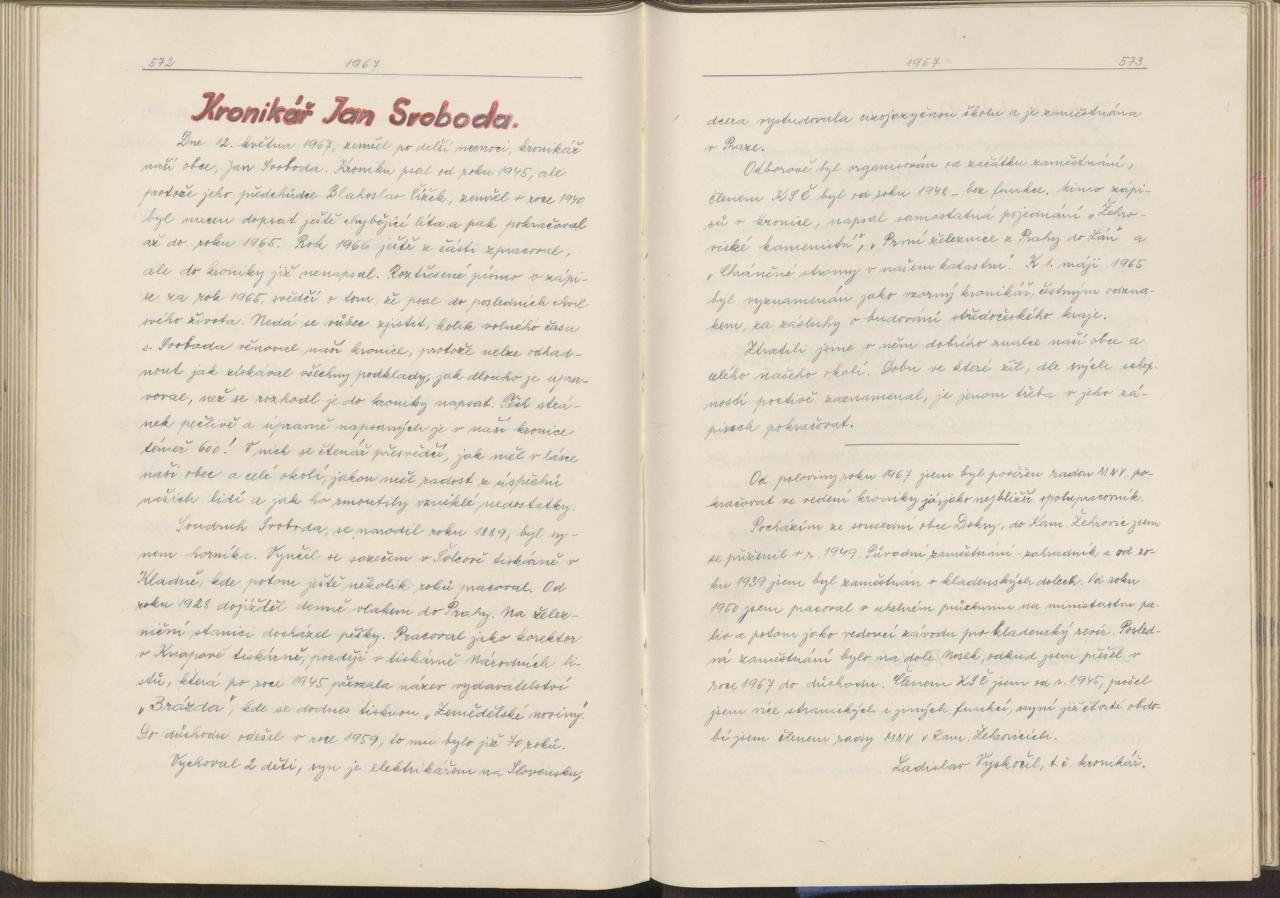 572 1967
Kronikář Jan Svoboda.
Dne 12. května 1967, zemřel po delší nemoci, kronikář
naší obce, Jan Svoboda. Kroniku psal od roku 1945, ale
protože jeho předchůdce Blahoslav Čížek, zemřel v roce 1940
byl nucen dopsat ještě chybějící léta a pak pokračoval
až do roku 1965. Rok 1966 ještě z části zpracoval,
ale do kroniky již nenapsal. Roztřesené písmo v zápi-
se za rok 1965, svědčí o tom, že psal do posledních chvil
svého života. Nedá se vůbec zjistit, kolik volného času
s. Svoboda věnoval naší kronice, protože nelze odhad-
nout jak získával všechny podklady, jak dlouho je upra-
voval, než se rozhodl je do kroniky napsat. Těch strá-
nek pečlivě a úpravně napsaných je v naší kronice
téměř 600! V nich se čtenář přesvědčí, jak měl v lásce
naši obec a celé okolí, jakou měl radost z úspěchů
našich lidí a jak ho rmoutily vzniklé nedostatky.
Soudruh Svoboda, se narodil roku 1889, byl sy-
nem horníka. Vyučil se sazečem v Šolcově tiskárně v
Kladně, kde potom ještě několik roků pracoval. Od
roku 1928 dojížděl denně vlakem do Prahy. Na želez-
niční stanici docházel pěšky. Pracoval jako korektor
v Knapově tiskárně, později v tiskárně Národních li-
stů, která po roce 1945 převzala název vydavatelství
„Brázda", kde se dodnes tisknou „Zemědělské noviny".
Do důchodu odešel v roce 1959, to mu bylo již 70 roků.
Vychoval 2 děti, syn je elektrikářem na Slovensku,
1967 573
dcera vystudovala cizojazyčnou školu a je zaměstnána
v Praze.
Odborově byl organisován od začátku zaměstnání,
členem KSČ byl od roku 1948 - bez funkce. Mimo zápi-
sů v kronice, napsal samostatná pojednání „Žehro-
vické kamenictví", „První železnice z Prahy do Lán" a
„Chráněné stromy v našem katastru". K 1. máji 1965
byl vyznamenán jako vzorný kronikář, čestným odzna-
kem, za zásluhy o budování středočeského kraje.
Ztratili jsme v něm dobrého znalce naší obce a
celého našeho okolí. Dobu ve které žil, dle svých schop-
ností poctivě zaznamenal, je jenom třeba v jeho zá-
pisech pokračovat.
Od poloviny roku 1967 jsem byl pověřen radou MNV po-
kračovat ve vedení kroniky já, jako nejbližší spolupracovník.
Pocházím ze sousední obce Doksy, do Kam. Žehrovic jsem
se přiženil v r. 1949. Původní zaměstnání - zahradník a od ro-
ku 1939 jsem byl zaměstnán v kladenských dolech. Od roku
1950 jsem pracoval v uhelném průzkumu na ministerstvu pa-
liv a potom jako vedoucí závodu pro kladenský revír. Posled-
ní zaměstnání bylo na dole Nosek, odkud jsem přešel v
roce 1967 do důchodu. Členem KSČ jsem od r. 1945, prošel
jsem více stranických i jiných funkcí, nyní již čtvrté obdo-
bí jsem členem rady MNV v Kam. Žehrovicích.
Ladislav Vyskočil, t.č. kronikář.